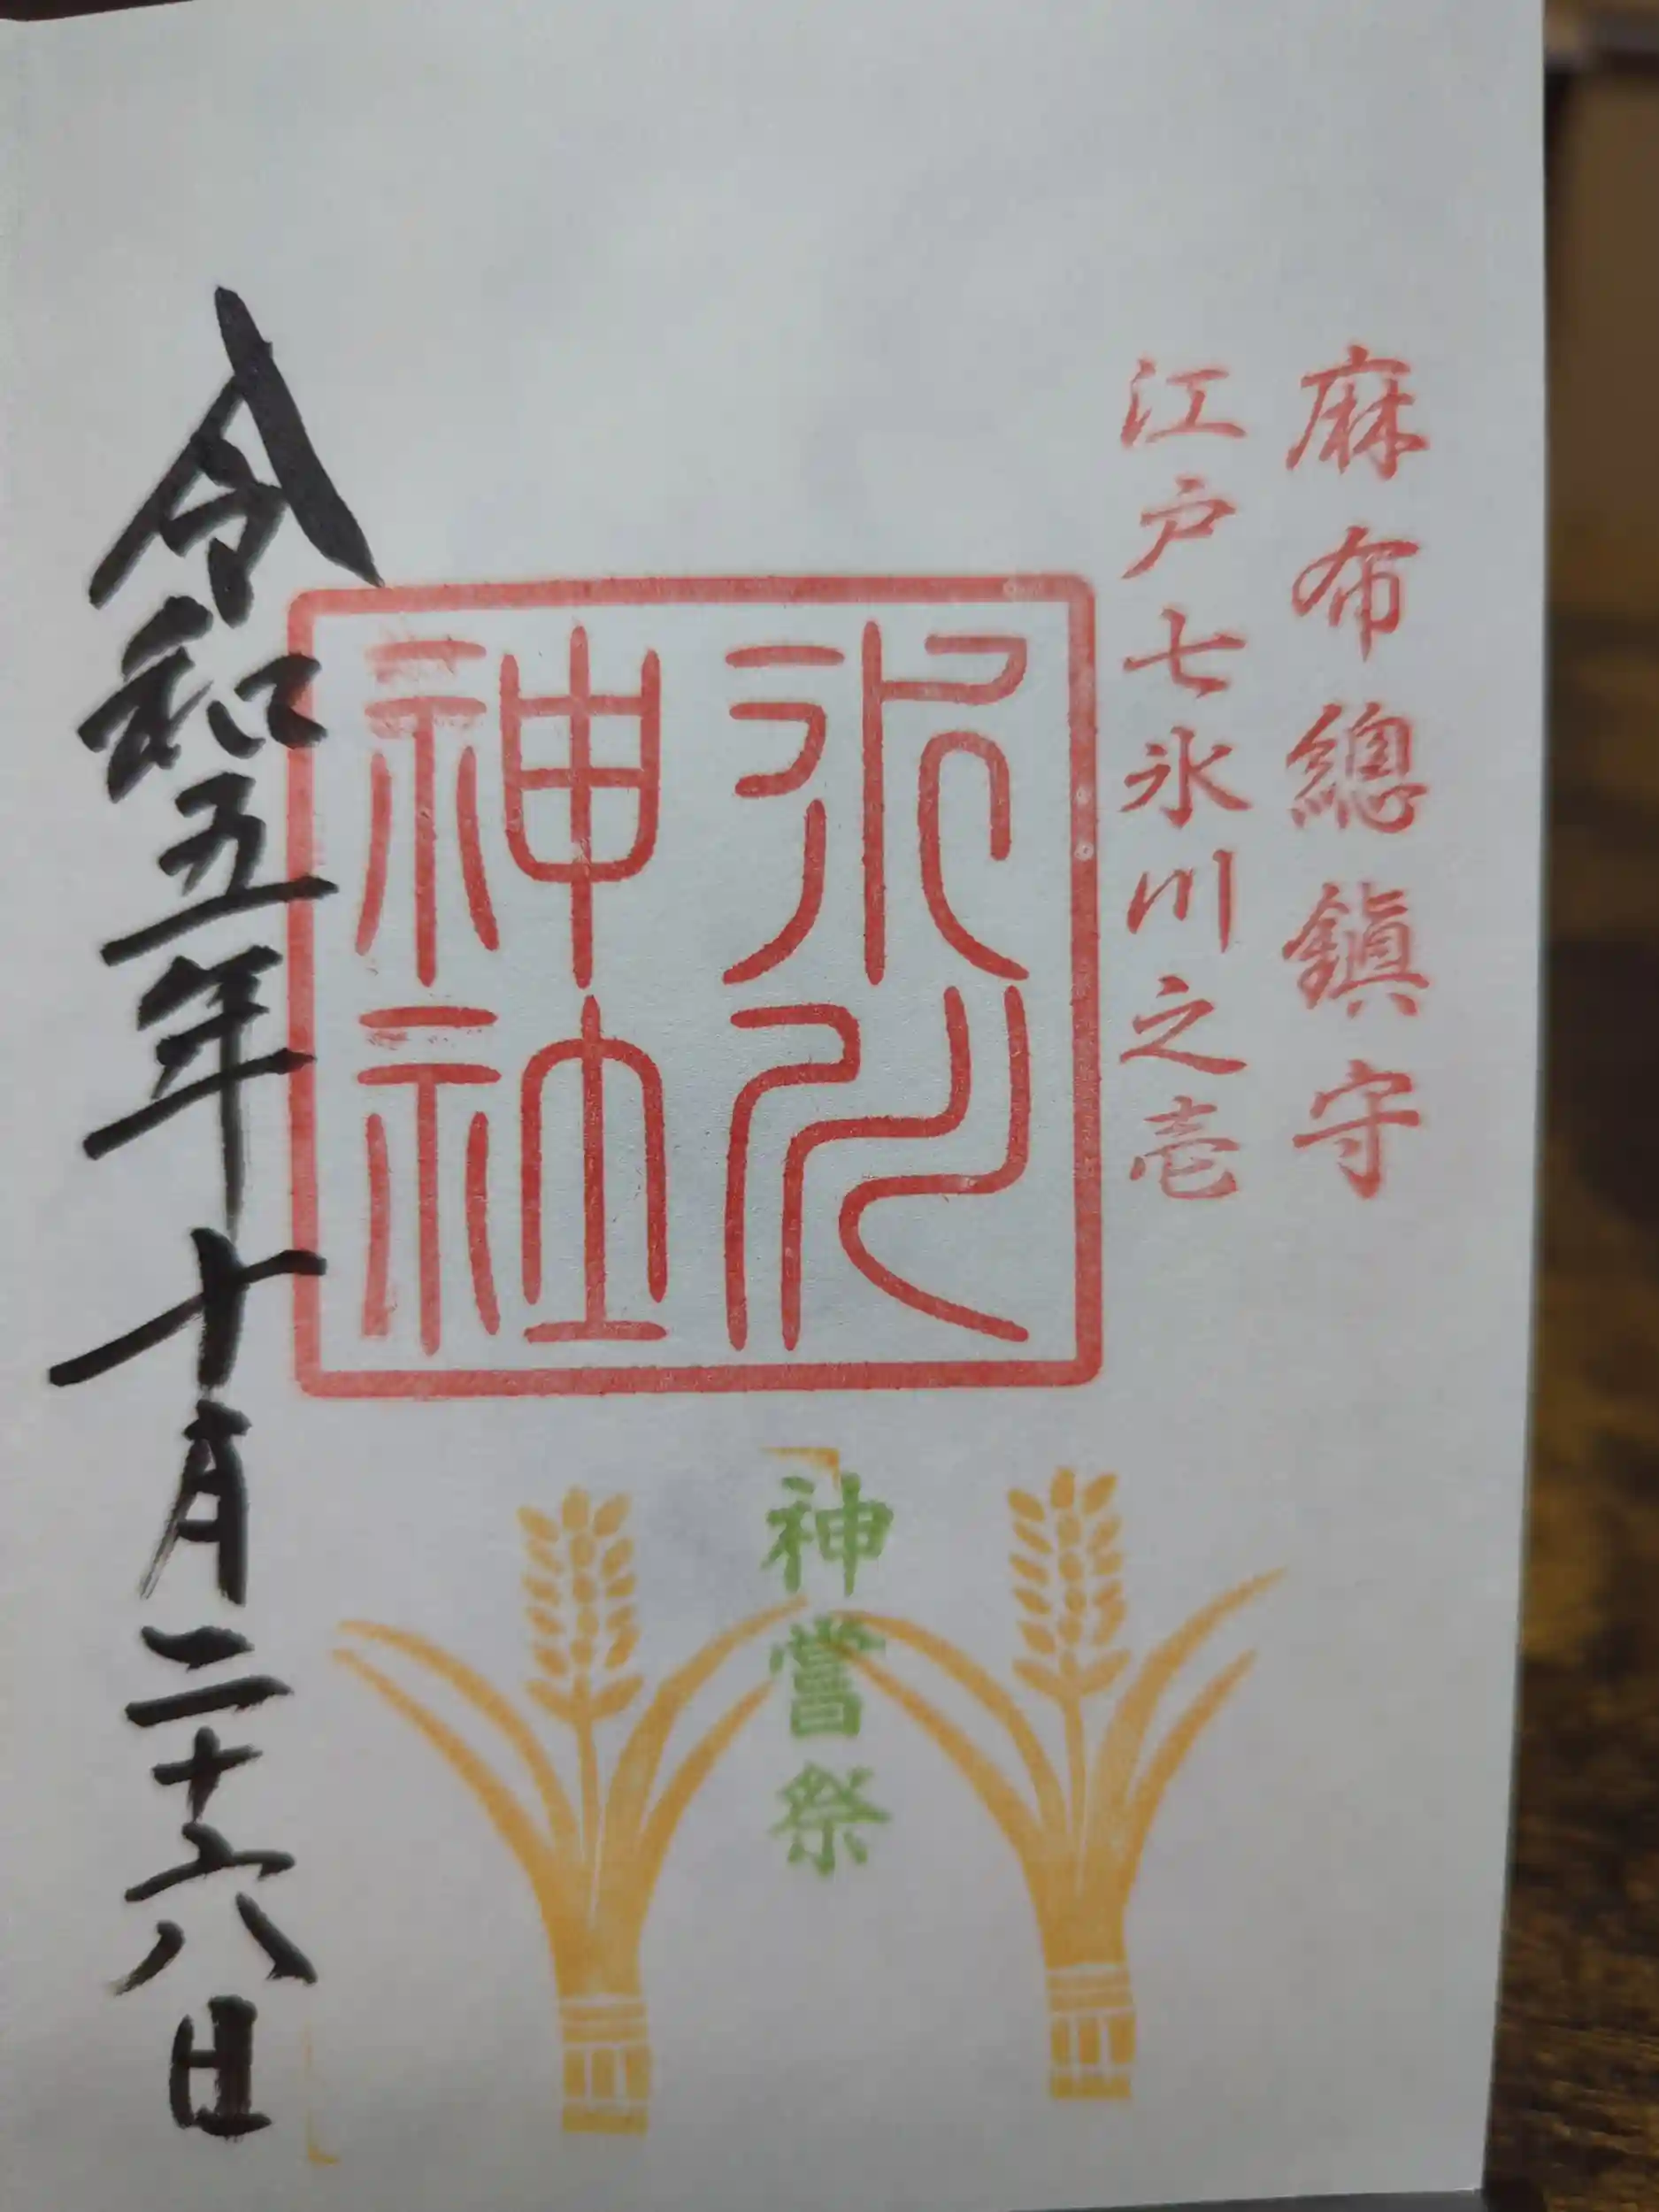 麻布總鎭守
江戸七氷川之壱
氷川
神社
神嘗祭
令和五年十月二十六日